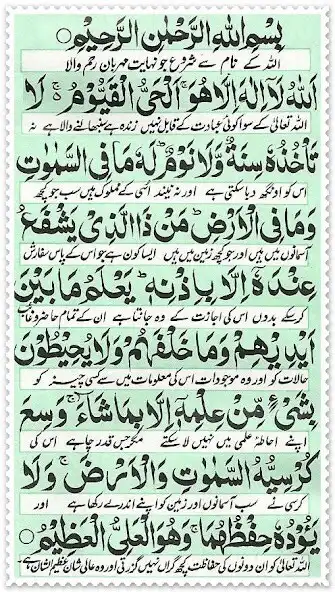 بِسْمِ اللهِ الرَّحْمٰنِ الرَّحِيْمِ ○
اللہ کے نام سے شروع جو نہایت مہربان رحم والا
اَللهُ لَاۤ اِلٰهَ اِلَّا هُوَ ۚ اَلْحَيُّ الْقَيُّوْمُ ۚ لَا
اللہ تعالیٰ کے سوا کوئی عبادت کے قابل نہیں زندہ ہے سنبھالنے والا ہے نہ
تَاْخُذُهٗ سِنَةٌ وَّلَا نَوْمٌ ؕ لَهٗ مَا فِي السَّمٰوٰتِ
اس کو اونگھ دبا سکتی ہے اور نہ نیند اسی کے مملوک ہیں سب جو کچھ
وَمَا فِي الْاَرْضِ ؕ مَنْ ذَا الَّذِيْ يَشْفَعُ
آسمانوں میں ہیں اور جو کچھ زمین میں ہیں ایسا کون ہے جو اس کے پاس سفارش
عِنْدَهٗۤ اِلَّا بِاِذْنِهٖ ؕ يَعْلَمُ مَا بَيْنَ
کرسکے بدوں اس کی اجازت کے وہ جانتا ہے ان کے تمام حاضر و غائب
اَيْدِيْهِمْ وَمَا خَلْفَهُمْ ۚ وَلَا يُحِيْطُوْنَ
حالات کو اور وہ موجودات اس کی معلومات میں سے کسی چیز کو
بِشَيْءٍ مِّنْ عِلْمِهٖۤ اِلَّا بِمَا شَآءَ ۚ وَسِعَ
اپنے احاطۂ علمی میں نہیں لا سکتے مگر جس قدر چاہے اس کی
كُرْسِيُّهُ السَّمٰوٰتِ وَالْاَرْضَ ۚ وَلَا
کرسی نے سب آسمانوں اور زمین کو اپنے اندر لے رکھا ہے اور
يَـُٔوْدُهٗ حِفْظُهُمَا ۚ وَهُوَ الْعَلِيُّ الْعَظِيْمُ ○
اللہ تعالیٰ کو ان دونوں کی حفاظت کچھ گراں نہیں گزرتی اور وہ عالی شان عظیم الشان ہے۔